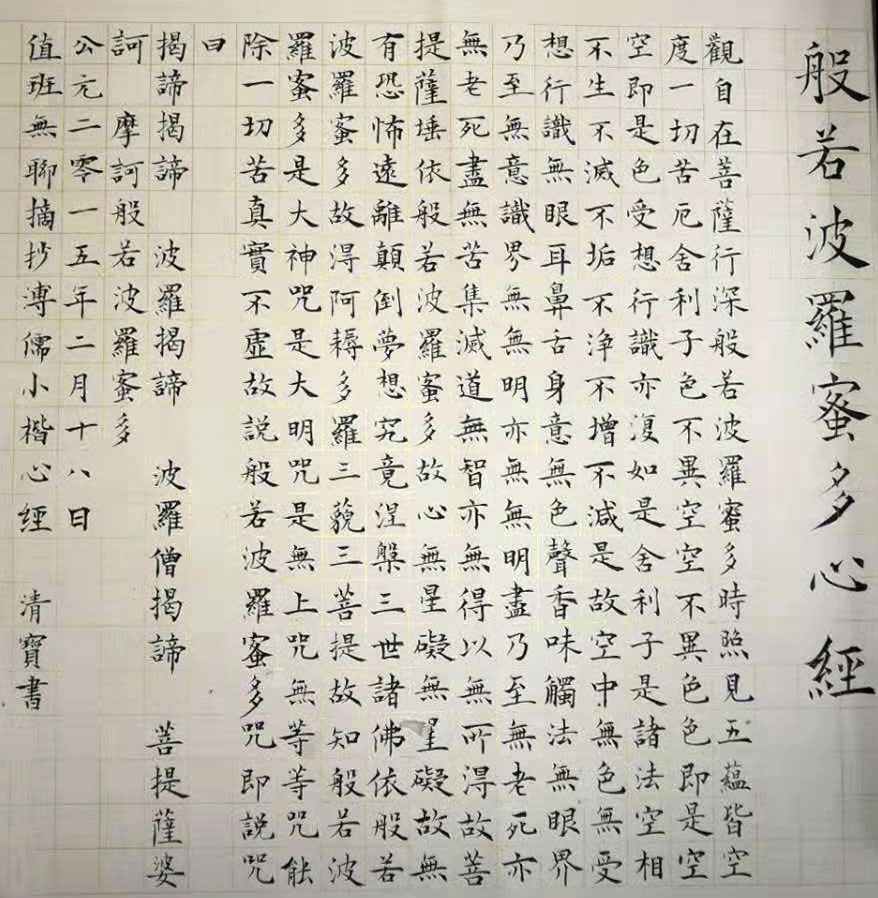 般若波羅蜜多心經
觀自在菩薩行深般若波羅蜜多時照見五蘊皆空
度一切苦厄舍利子色不異空空不異色色即是空
空即是色受想行識亦復如是舍利子是諸法空相
不生不滅不垢不淨不增不減是故空中無色無受
想行識無眼耳鼻舌身意無色聲香味觸法無眼界
乃至無意識界無無明亦無無明盡乃至無老死亦
無老死盡無苦集滅道無智亦無得以無所得故菩
提薩埵依般若波羅蜜多故心無罣礙無罣礙故無
有恐怖遠離顛倒夢想究竟涅槃三世諸佛依般若
波羅蜜多故得阿耨多羅三藐三菩提故知般若波
羅蜜多是大神咒是大明咒是無上咒無等等咒能
除一切苦真實不虛故說般若波羅蜜多咒即說咒
曰
揭諦揭諦 波羅揭諦 波羅僧揭諦 菩提薩婆
訶 摩訶般若波羅蜜多
公元二零一五年二月十八日
值班無聊摘抄溥儒小楷心經 清寶書